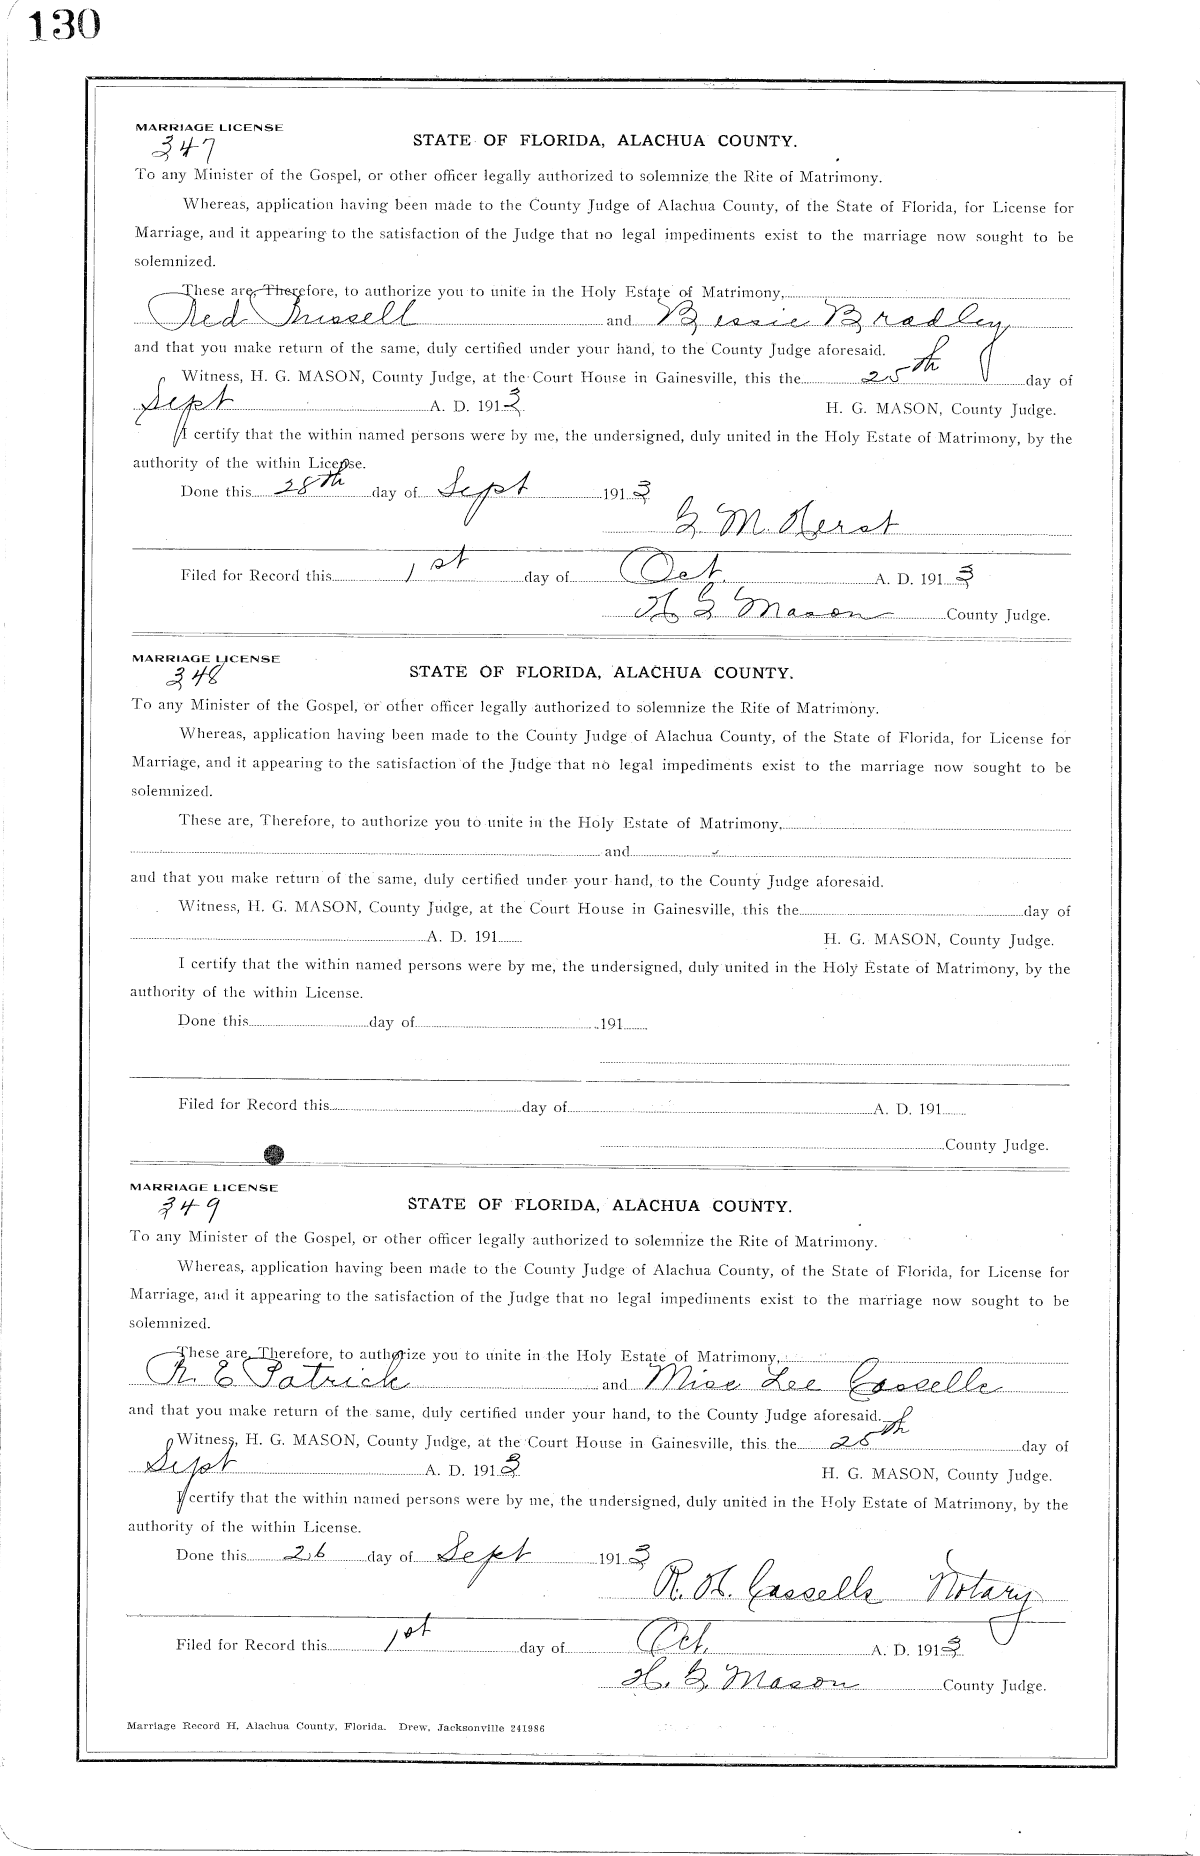 130
MARRIAGE LICENSE
347
STATE OF FLORIDA, ALACHUA COUNTY.
To any Minister of the Gospel, or other officer legally authorized to solemnize the Rite of Matrimony.
Whereas, application having been made to the County Judge of Alachua County, of the State of Florida, for License for
Marriage, and it appearing to the satisfaction of the Judge that no legal impediments exist to the marriage now sought to be
solemnized.
These are, Therefore, to authorize you to unite in the Holy Estate of Matrimony,
and Bessie Bradley
and that you make return of the same, duly certified under your hand, to the County Judge aforesaid.
Witness, H. G. MASON, County Judge, at the Court House in Gainesville, this the 25th day of
Sept A. D. 1913 H. G. MASON, County Judge.
I certify that the within named persons were by me, the undersigned, duly united in the Holy Estate of Matrimony, by the
authority of the within License.
Done this 28th day of Sept 1913
G. M. Herst
Filed for Record this 1st day of Oct. A. D. 1913
H G Mason County Judge.
MARRIAGE LICENSE
348
STATE OF FLORIDA, ALACHUA COUNTY.
To any Minister of the Gospel, or other officer legally authorized to solemnize the Rite of Matrimony.
Whereas, application having been made to the County Judge of Alachua County, of the State of Florida, for License for
Marriage, and it appearing to the satisfaction of the Judge that no legal impediments exist to the marriage now sought to be
solemnized.
These are, Therefore, to authorize you to unite in the Holy Estate of Matrimony,
and
and that you make return of the same, duly certified under your hand, to the County Judge aforesaid.
Witness, H. G. MASON, County Judge, at the Court House in Gainesville, this the day of
A. D. 191 H. G. MASON, County Judge.
I certify that the within named persons were by me, the undersigned, duly united in the Holy Estate of Matrimony, by the
authority of the within License.
Done this day of 191
Filed for Record this day of A. D. 191
County Judge.
MARRIAGE LICENSE
349
STATE OF FLORIDA, ALACHUA COUNTY.
To any Minister of the Gospel, or other officer legally authorized to solemnize the Rite of Matrimony.
Whereas, application having been made to the County Judge of Alachua County, of the State of Florida, for License for
Marriage, and it appearing to the satisfaction of the Judge that no legal impediments exist to the marriage now sought to be
solemnized.
These are, Therefore, to authorize you to unite in the Holy Estate of Matrimony,
R E Patrick and Miss Lee Cassells
and that you make return of the same, duly certified under your hand, to the County Judge aforesaid.
Witness, H. G. MASON, County Judge, at the Court House in Gainesville, this the 25th day of
Sept A. D. 1913 H. G. MASON, County Judge.
I certify that the within named persons were by me, the undersigned, duly united in the Holy Estate of Matrimony, by the
authority of the within License.
Done this 26 day of Sept 1913
R. H. Cassells Notary
Filed for Record this 1st day of Oct. A. D. 1913
H. G. Mason County Judge.
Marriage Record H, Alachua County, Florida. Drew, Jacksonville 241986